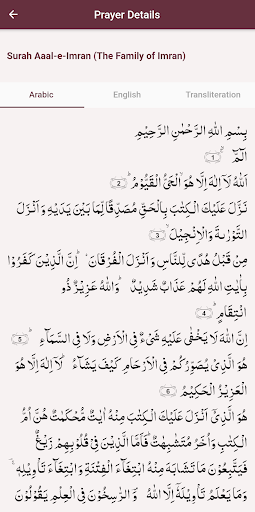 Prayer Details
Surah Aaal-e-Imran (The Family of Imran)
Arabic English Transliteration
بِسْمِ اللهِ الرَّحْمٰنِ الرَّحِيْمِ
الٓمّٓ ۙ ﴿1﴾
اللّٰهُ لَاۤ اِلٰهَ اِلَّا هُوَ الْحَىُّ الْقَيُّوْمُؕ ﴿2﴾
نَزَّلَ عَلَيْكَ الْكِتٰبَ بِالْحَقِّ مُصَدِّقًا لِّمَا بَيْنَ يَدَيْهِ وَاَنْزَلَ
التَّوْرٰٮةَ وَالْاِنْجِيْلَۙ ﴿3﴾
مِنْ قَبْلُ هُدًى لِّلنَّاسِ وَاَنْزَلَ الْفُرْقَانَ ؕ اِنَّ الَّذِيْنَ كَفَرُوْا
بِاٰيٰتِ اللّٰهِ لَهُمْ عَذَابٌ شَدِيْدٌ ؕ وَاللّٰهُ عَزِيْزٌ ذُو
انْتِقَامٍؕ ﴿4﴾
اِنَّ اللّٰهَ لَا يَخْفٰى عَلَيْهِ شَىْءٌ فِى الْاَرْضِ وَلَا فِى السَّمَآءِؕ ﴿5﴾
هُوَ الَّذِىْ يُصَوِّرُكُمْ فِى الْاَرْحَامِ كَيْفَ يَشَآءُ ؕ لَاۤ اِلٰهَ اِلَّا هُوَ
الْعَزِيْزُ الْحَكِيْمُ ﴿6﴾
هُوَ الَّذِىْۤ اَنْزَلَ عَلَيْكَ الْكِتٰبَ مِنْهُ اٰيٰتٌ مُّحْكَمٰتٌ هُنَّ اُمُّ
الْكِتٰبِ وَاُخَرُ مُتَشٰبِهٰتٌؕ فَاَمَّا الَّذِيْنَ فِىْ قُلُوْبِهِمْ زَيْغٌ
فَيَتَّبِعُوْنَ مَا تَشَابَهَ مِنْهُ ابْتِغَآءَ الْفِتْنَةِ وَابْتِغَآءَ تَاْوِيْلِهٖۚ
وَمَا يَعْلَمُ تَاْوِيْلَهٗۤ اِلَّا اللّٰهُ ؔ وَ الرّٰسِخُوْنَ فِى الْعِلْمِ يَقُوْلُوْنَ